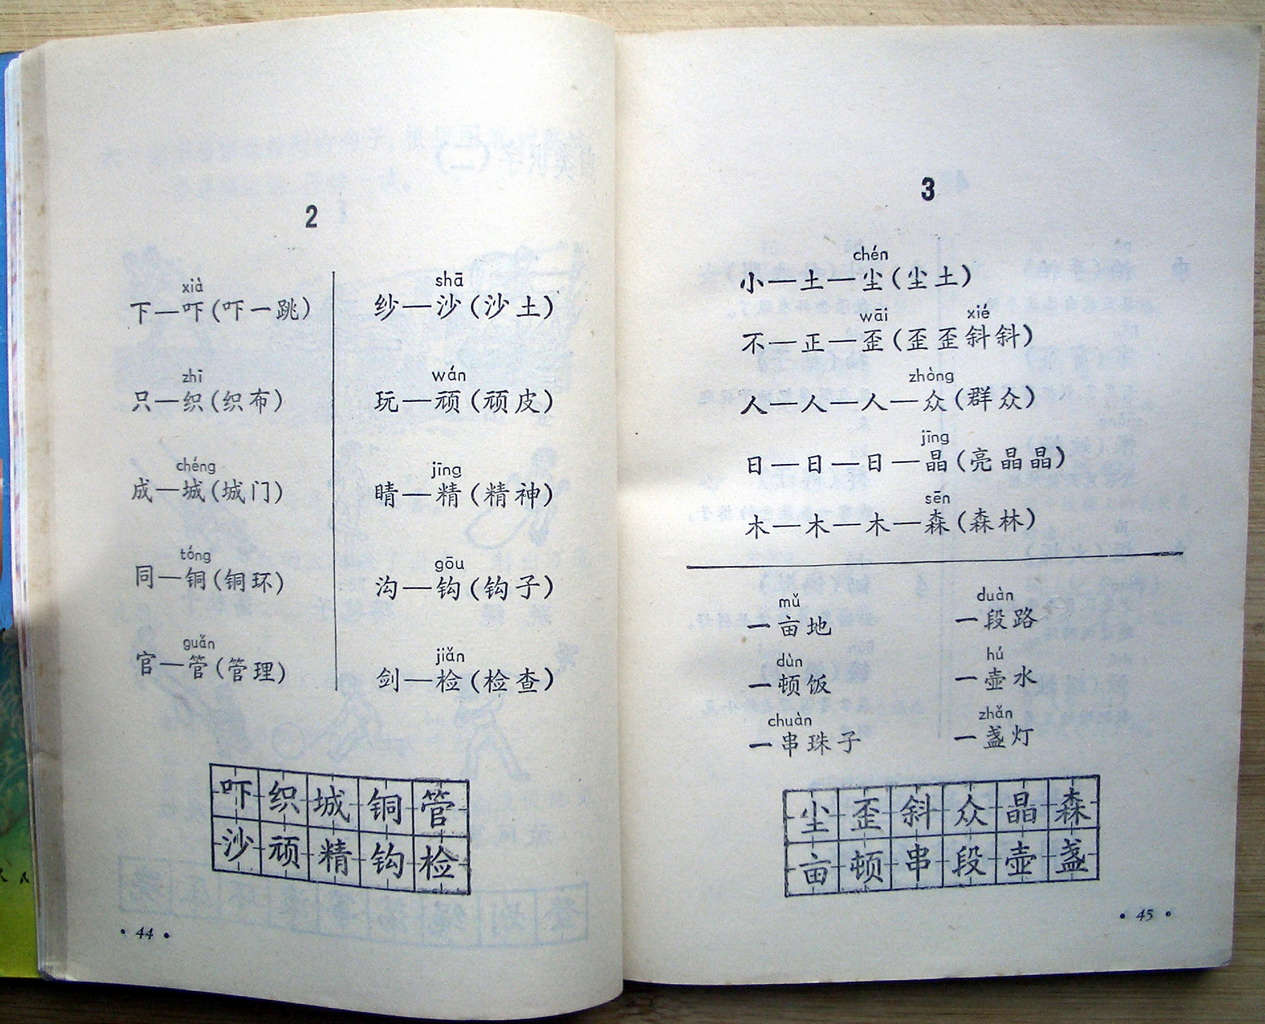 2
xià
下—吓(吓一跳)
zhī
只—织(织布)
chéng
成—城(城门)
tóng
同—铜(铜环)
guǎn
官—管(管理)
shā
纱—沙(沙土)
wán
玩—顽(顽皮)
jīng
晴—精(精神)
gōu
沟—钩(钩子)
jiǎn
剑—检(检查)
吓织城铜管
沙顽精钩检
• 44 •
3
chén
小—土—尘(尘土)
wāi xié
不—正—歪(歪歪斜斜)
zhòng
人—人—人—众(群众)
jīng
日—日—日—晶(亮晶晶)
sēn
木—木—木—森(森林)
mǔ duàn
一亩地 一段路
dùn hú
一顿饭 一壶水
chuàn zhǎn
一串珠子 一盏灯
尘歪斜众晶森
亩顿串段壶盏
• 45 •